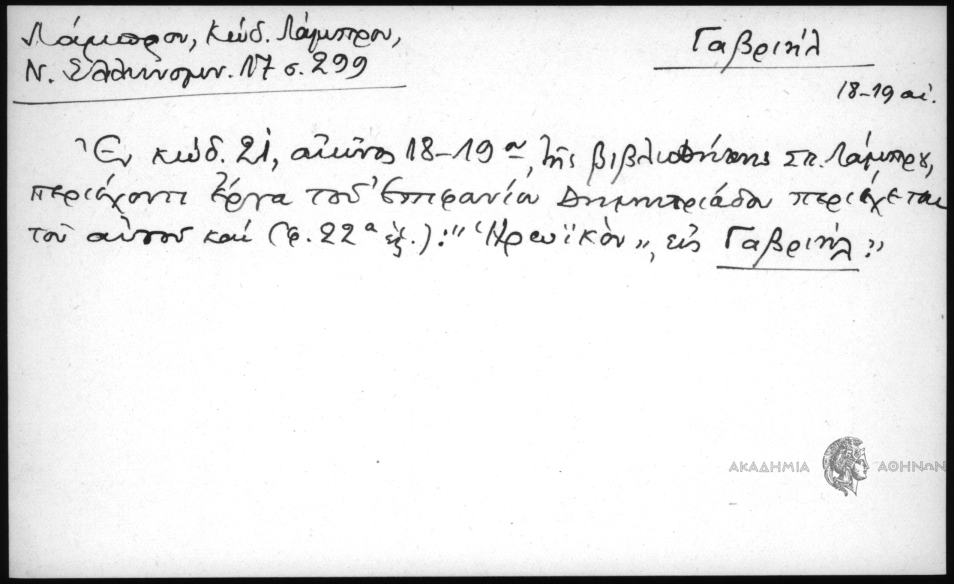 Λάμπρου, Κώδ. Λάμπρου,
Ν. Ἑλληνομν. 17 σ. 299
Γαβριήλ
18-19 αἰ.
Ἐν κώδ. 21, αἰῶνος 18-19ου, τῆς βιβλιοθήκης Σπ. Λάμπρου,
περιέχοντι ἔργα τοῦ Ἐπιφανίου Δημητριάδου περιέχεται
τοῦ αὐτοῦ καί (φ. 22α ἑξ.): "Ἡρωϊκὸν„ εἰς Γαβριήλ:"
ΑΚΑΔΗΜΙΑ ΑΘΗΝΩΝ